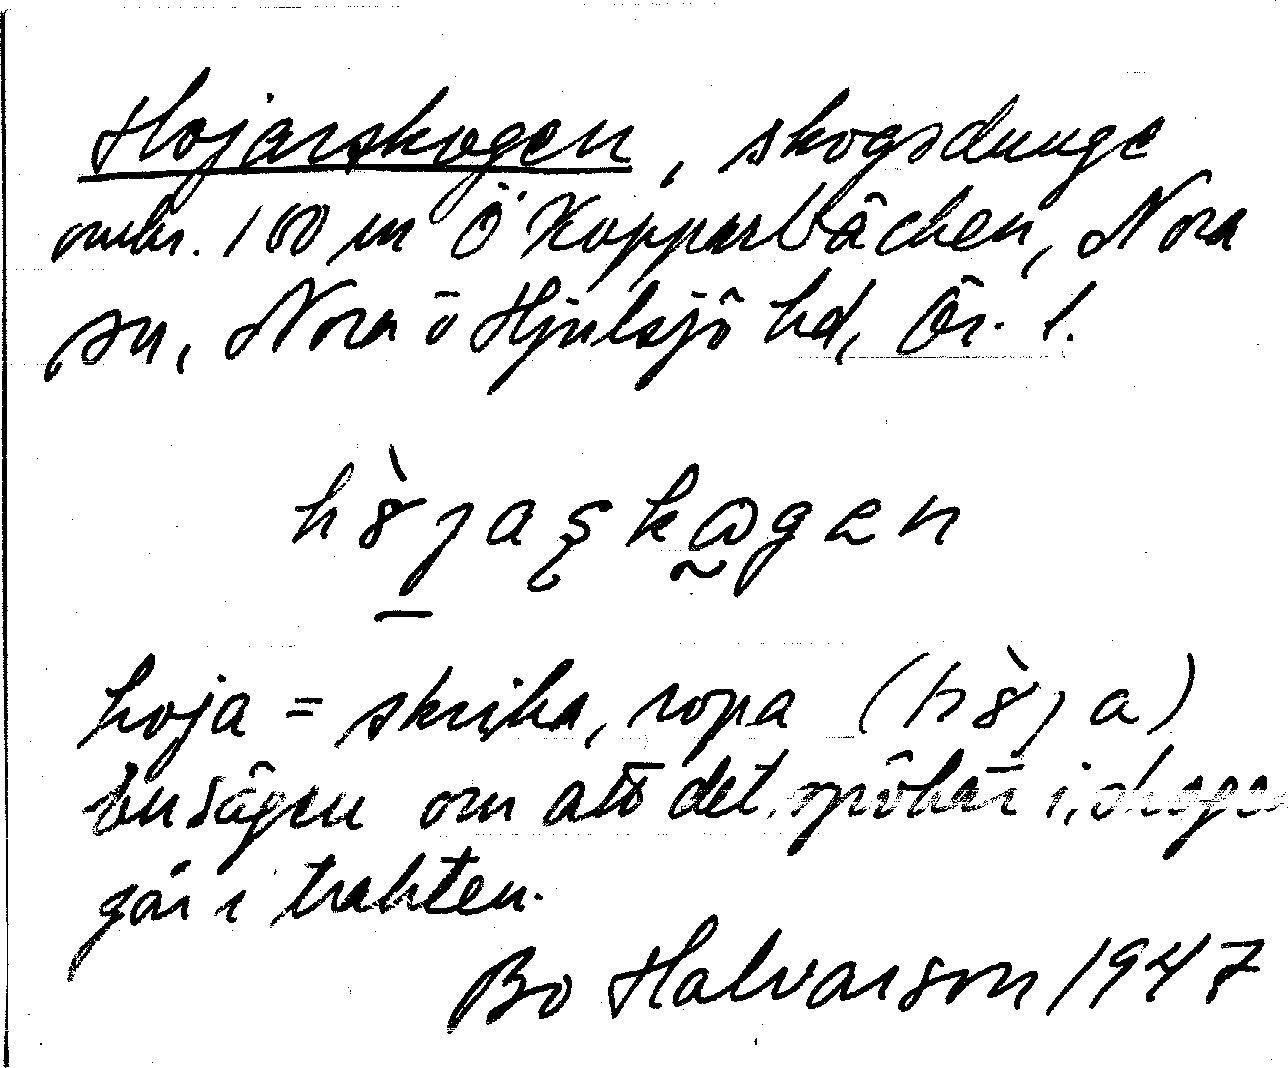 Hojarskogen, skogsdunge
omkr. 100 m Ö Kopparbäcken, Nora
sn, Nora o Hjulsjö hd, Ör. l.
hoja = skrika, ropa
En sägen om att det spökar i skoge
går i trakten.
Bo Halvarson 1947